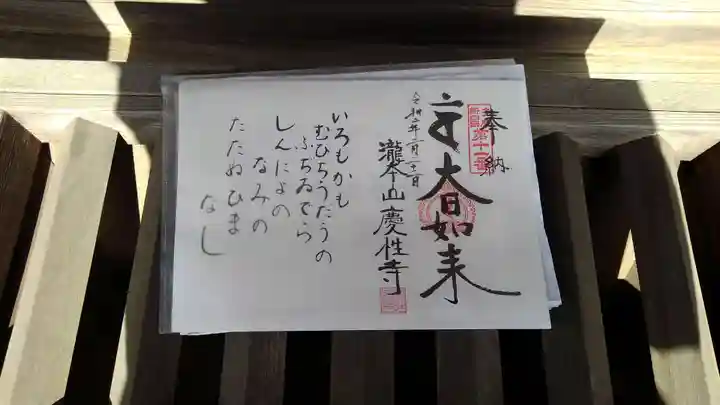 奉納
第十一番
大日如来
令和二年一月二十一日
瀧本山慶性寺
いろもかも
むひちうたうの
ふちゐでら
しんによの
なみの
たたぬひま
なし